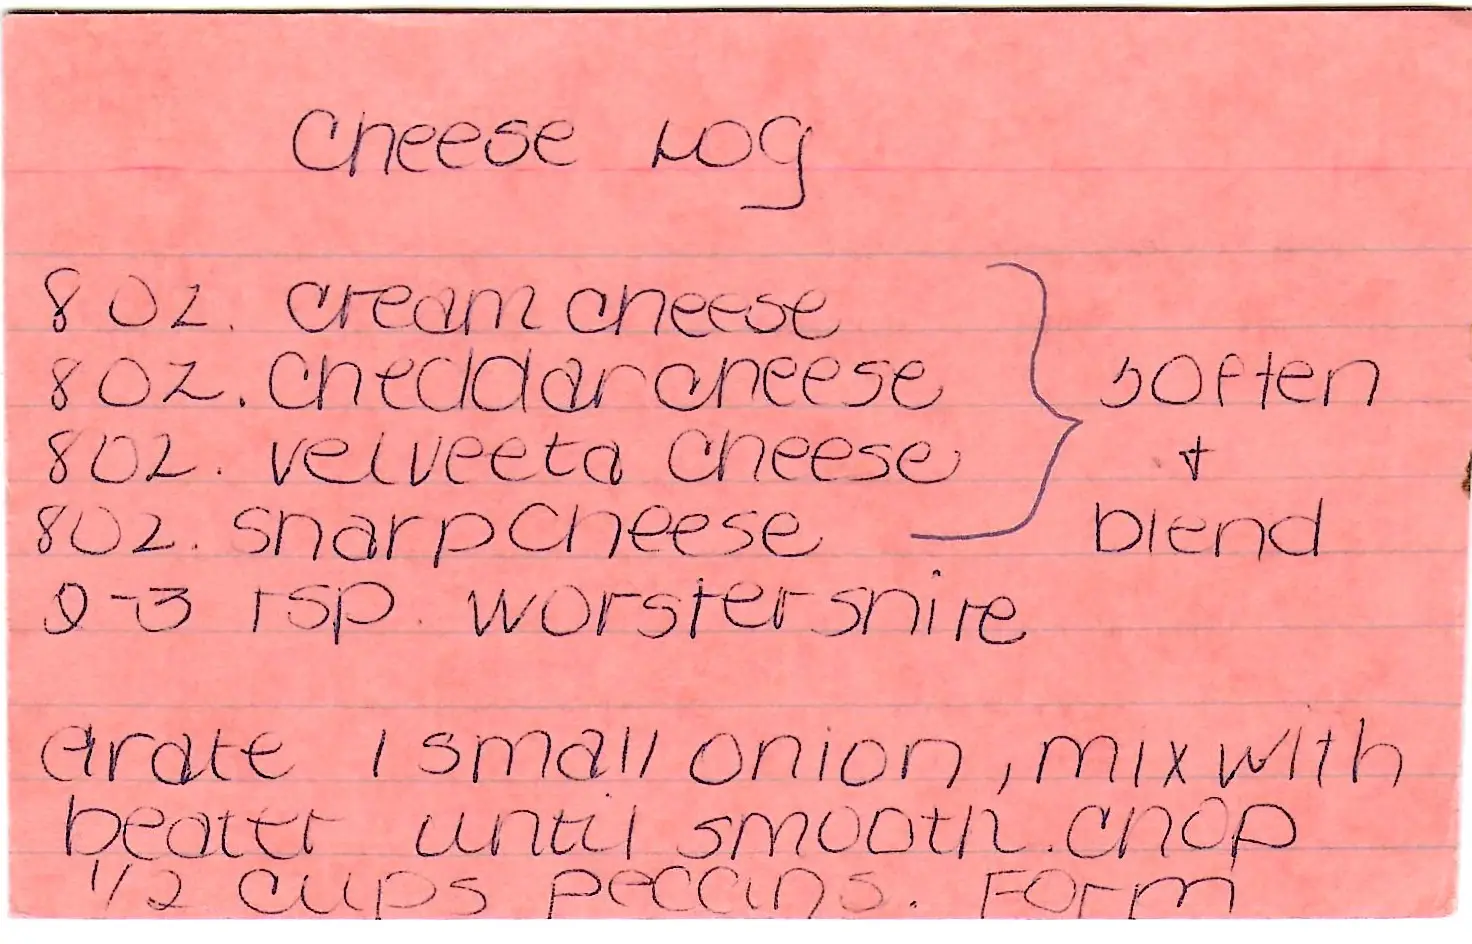 Cheese Log
8 oz. cream cheese
8 oz. cheddar cheese
8 oz. velveeta cheese
8 oz. sharp cheese
soften
+
blend
2-3 tsp. worstershire
Grate 1 small onion, mix with
beater until smooth. Chop
1/2 cups peccans. Form